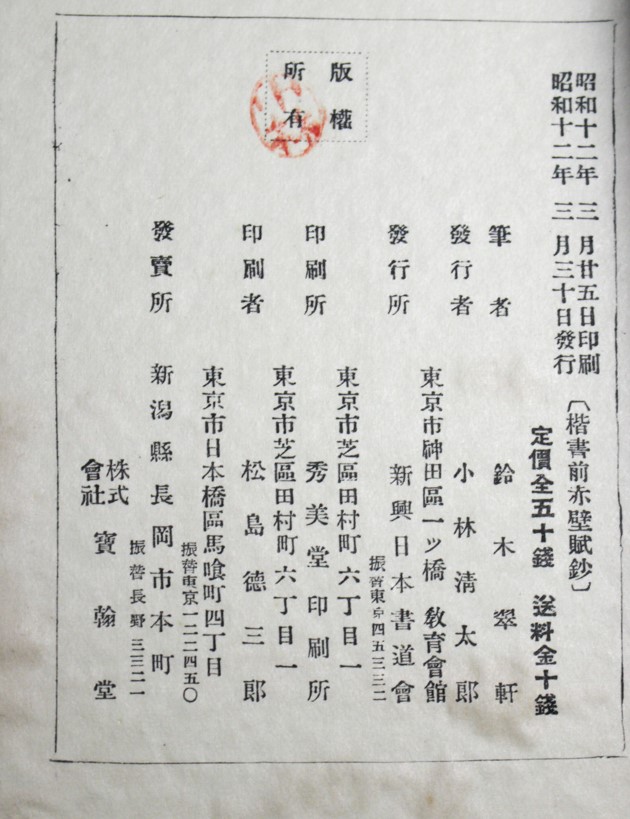 昭和十二年三月廿五日印刷
昭和十二年三月三十日發行
〔楷書前赤壁賦鈔〕
定價全五十錢 送料金十錢
筆者 鈴木翠軒
發行者 小林淸太郎
東京市神田區一ツ橋 敎育會館
發行所 新興日本書道會
振替東京四五三三二
東京市芝區田村町六丁目一
印刷所 秀美堂印刷所
東京市芝區田村町六丁目一
印刷者 松島德三郎
東京市日本橋區馬喰町四丁目
振替東京一二二四五〇
發賣所 新潟縣長岡市本町
振替長野三三二一
株式會社 寶翰堂
版權
所有